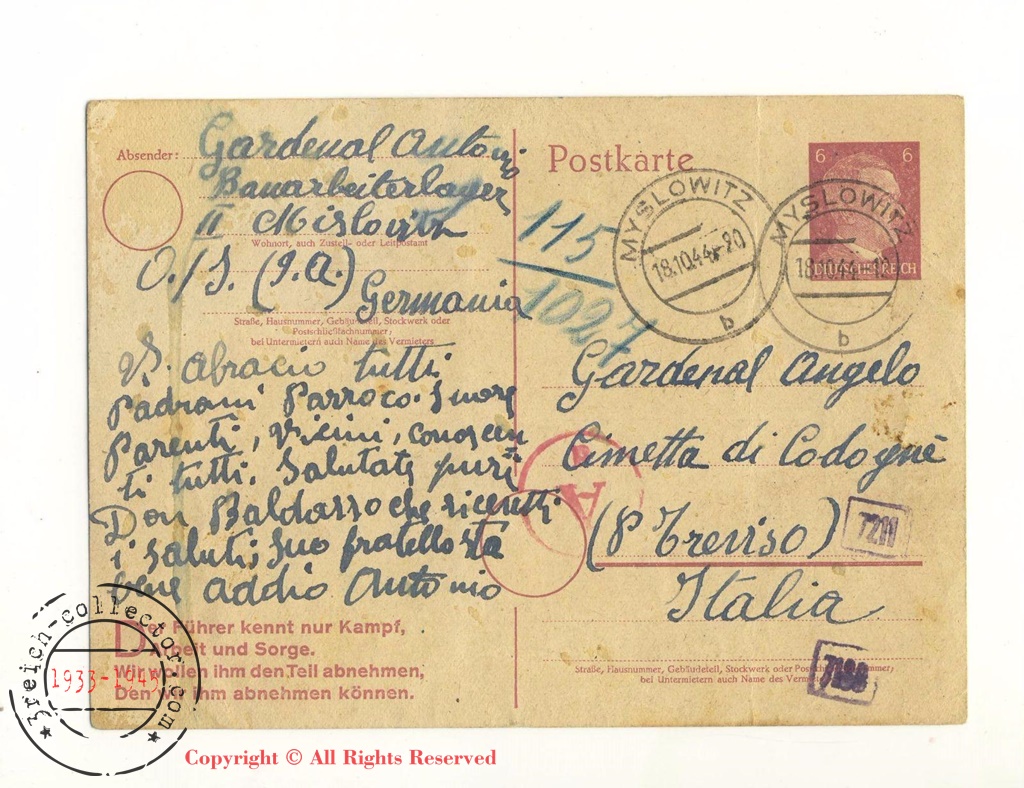 Absender: Gardenal Antonio
Bauarbeiterlager
II Mislowitz
Wohnort, auch Zustell- oder Leitpostamt
O./S. (g.a.)
Germania
Straße, Hausnummer, Gebäudeteil, Stockwerk oder
Postschließfachnummer;
bei Untermietern auch Name des Vermieters
V. abracio tutti
Padroni Parroco. Suore
Parenti, vicini, conoscen
ti tutti. Salutate
Don Baldasso che
i saluti, suo fratello sta
bene addio Antonio
Der Führer kennt nur Kampf,
Arbeit und Sorge.
Wir wollen ihm den Teil abnehmen,
Den wir ihm abnehmen können.
Postkarte
115
1027
MYSLOWITZ
18.10.44.-20
b
MYSLOWITZ
18.10.44
b
6 6
DEUTSCHES REICH
Gardenal Angelo
Cimetta di Codognè
A
(P Treviso)
7211
Italia
Straße, Hausnummer, Gebäudeteil, Stockwerk oder
bei Untermietern auch Name des
7198
3reich-collector.com
1933-1945
Copyright © All Rights Reserved